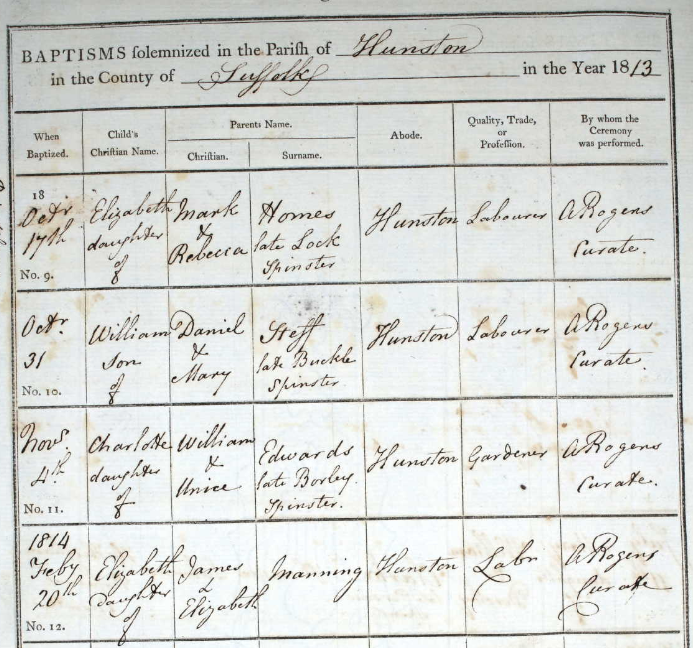 BAPTISMS solemnized in the Parish of Hunston
in the County of Suffolk in the Year 1813
When Baptized.
Child's Christian Name.
Parents Name.
Christian.
Surname.
Abode.
Quality, Trade, or Profession.
By whom the Ceremony was performed.
18
Octr
17th
No. 9.
Elizabeth
daughter
of
Mark
&
Rebecca
Homes
late Lock
Spinster
Hunston
Labourer
A Rogers
Curate.
Octr.
31
No. 10.
William
son
of
Daniel
&
Mary
Steff
late Buckle
Spinster
Hunston
Labourer
A Rogers
Curate.
Novr
4th
No. 11.
Charlotte
daughter
of
William
&
Unice
Edwards
late Borley.
Spinster.
Hunston
Gardener
A Rogers
Curate.
1814
Feby
20th
No. 12.
Elizabeth
daughter
of
James
&
Elizabeth
Manning
Hunston
Labr
A Rogers
Curate